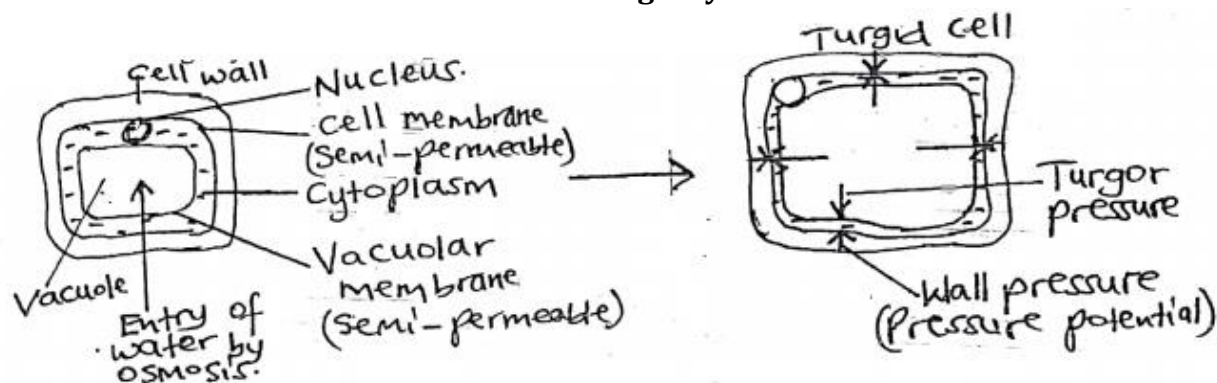 Cell wall
Nucleus.
Cell membrane
(Semi-permeable)
Cytoplasm
Vacuolar
membrane
(Semi-permeable)
Vacuole
Entry of
water by
osmosis.
Turgid cell
Turgor
pressure
Wall pressure
(Pressure potential)